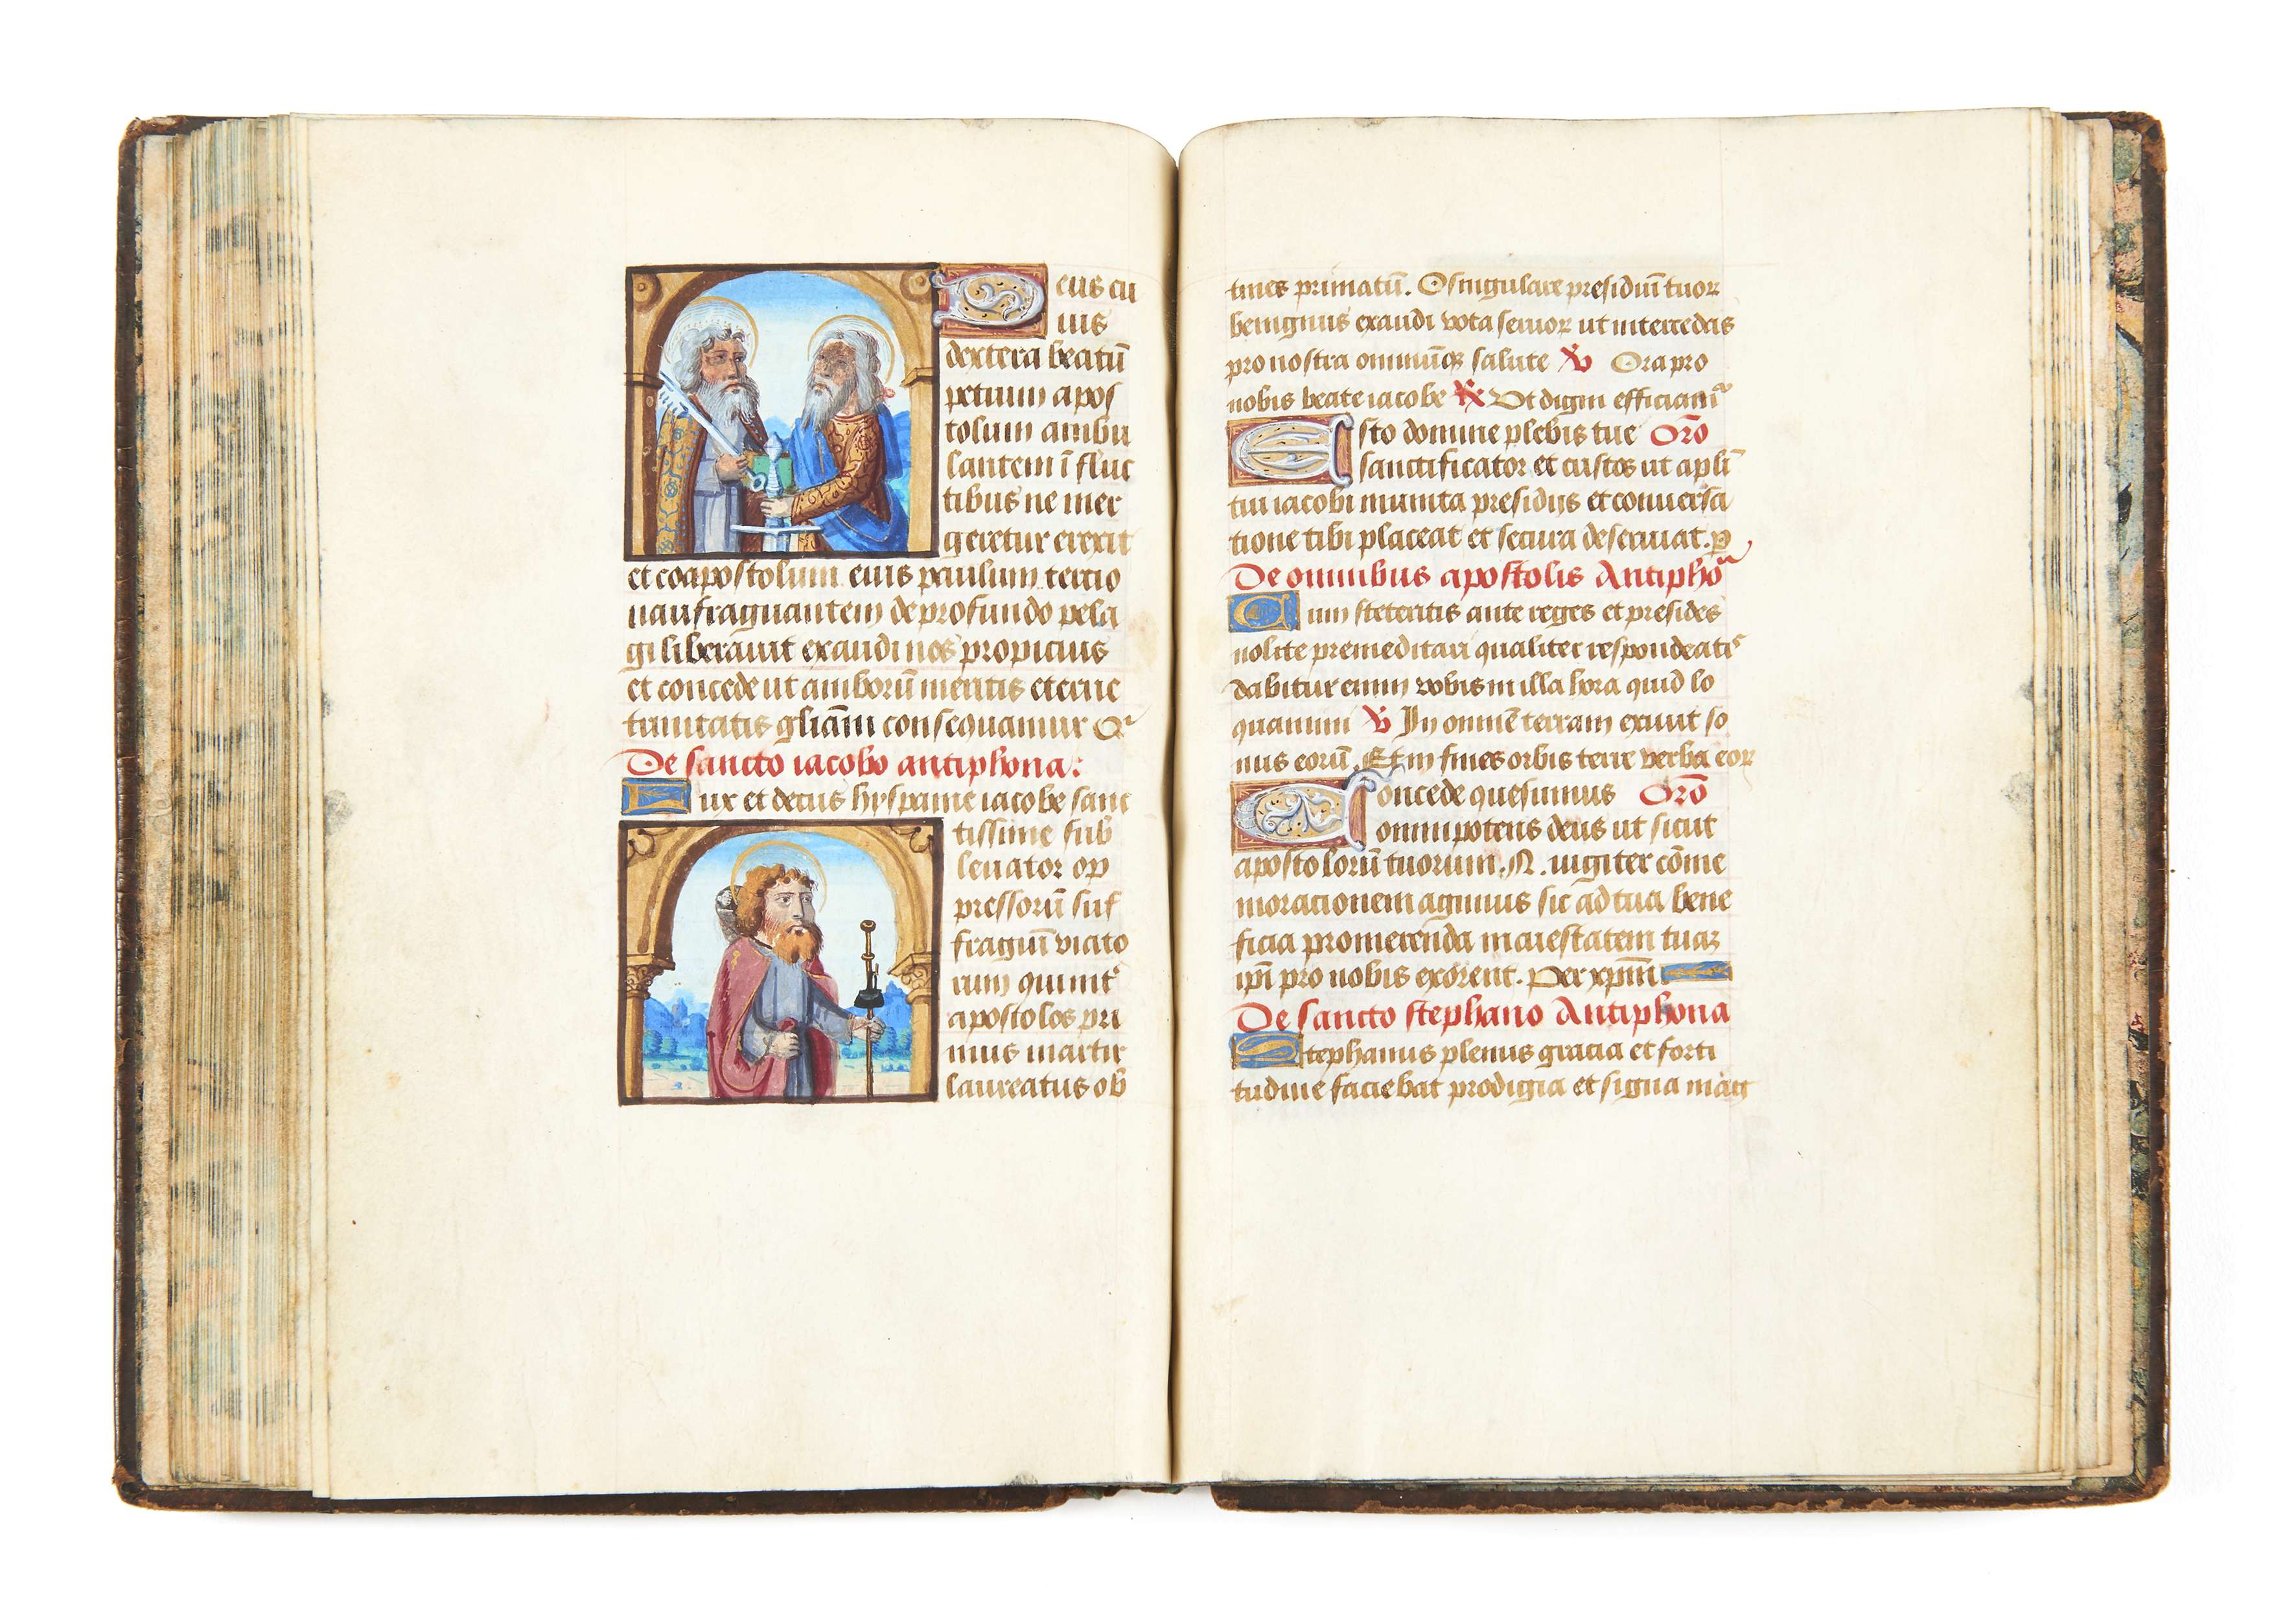 Deus cu
ius
dextera beatū
petrum apos
tolum ambu
lantem ī fluc
tibus ne mer
geretur erexit
et coapostolum eius paulum tercio
naufraguantem de profundo pela
gi liberauit exaudi nos propicius
et concede ut amborū meritis eterne
trinitatis gliām consequamur Qr
De sancto iacobo antiphona:
Lux et decus hyspanie iacobe sanc
tissime sub
leuator op
pressorū suf
fragiū viato
rum qui int
apostolos pri
mus martir
laureatus ob
tines primatū. O singulare presidiū tuor
benignus exaudi vota seruor ut intercedas
pro nostra omniūqꝫ salute ℣ Ora pro
nobis beate iacobe ℟ Vt digni efficiamr
Esto domine plebis tue Orō
sanctificator et custos ut aplī
tui iacobi munita presidijs et conuersa
tione tibi placeat et secura deseruiat. p
De omnibus apostolis Antiphōa
Cum steteritis ante reges et presides
nolite premeditari qualiter respondeatis
dabitur enim vobis in illa hora quid lo
quamini ℣ In omnē terram exiuit so
nus eorū. Et in fines orbis terre verba eor
Concede quesumus Orō
omnipotens deus ut sicut
apostolorū tuorum .N. iugiter cōme
moracionem agimus sic ad tua bene
ficia promerenda maiestatem tuaꝫ
ipī pro nobis exorent. Per xpm̄
De sancto stephano Antiphona
Stephanus plenus gracia et forti
tudine faciebat prodigia et signa mag